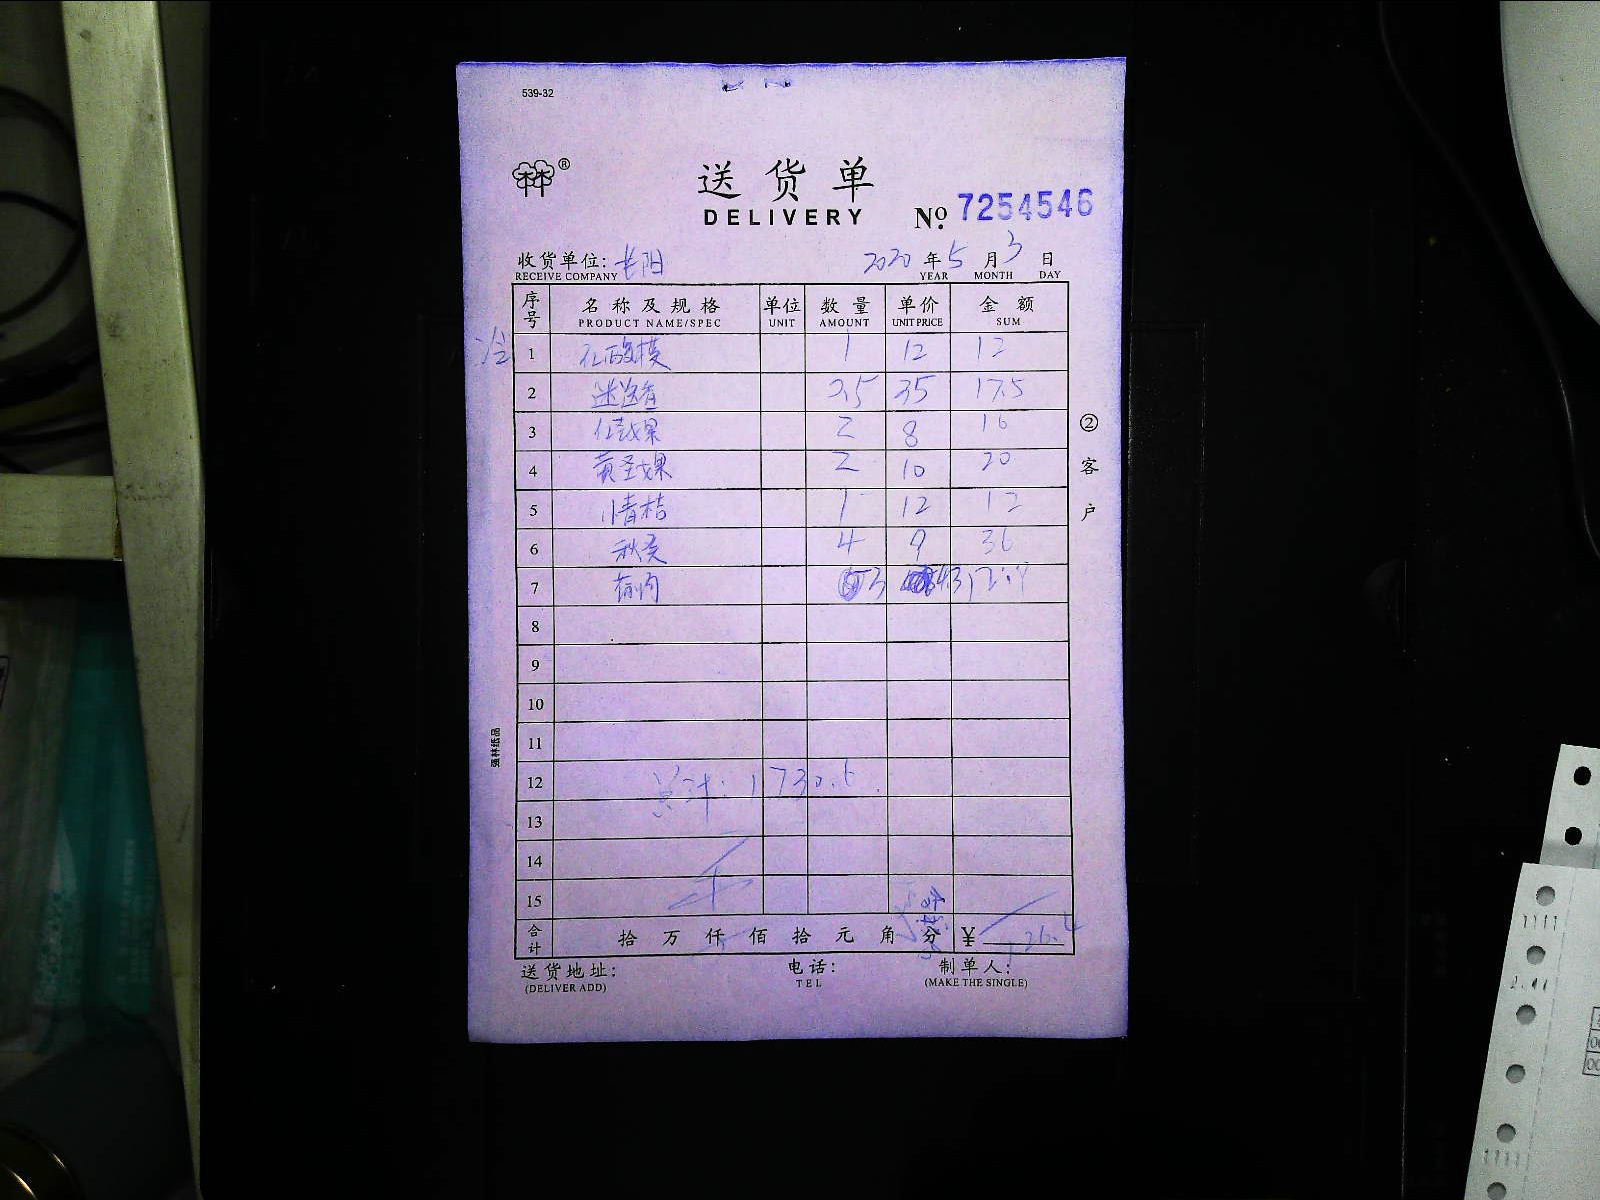 539-32
林®
送货单
DELIVERY № 7254546
收货单位: 长阳 2020 年 5 月 3 日
RECEIVE COMPANY YEAR MONTH DAY
序号 名称及规格 单位 数量 单价 金额
PRODUCT NAME/SPEC UNIT AMOUNT UNIT PRICE SUM
冷 1 红酸模 1 12 12
2 迷迭香 0.5 35 17.5
3 红圣女果 2 8 16
4 黄圣女果 2 10 20
5 青桔 1 12 12
6 秋葵 4 9 36
7 3 4.3 12.9
8
9
10
11
12 总计: 1730.5
13
14
15
合计 拾万仟佰拾元角分 ¥ 126.4
送货地址: 电话: 制单人:
(DELIVER ADD) TEL (MAKE THE SINGLE)
②客户
强林纸品